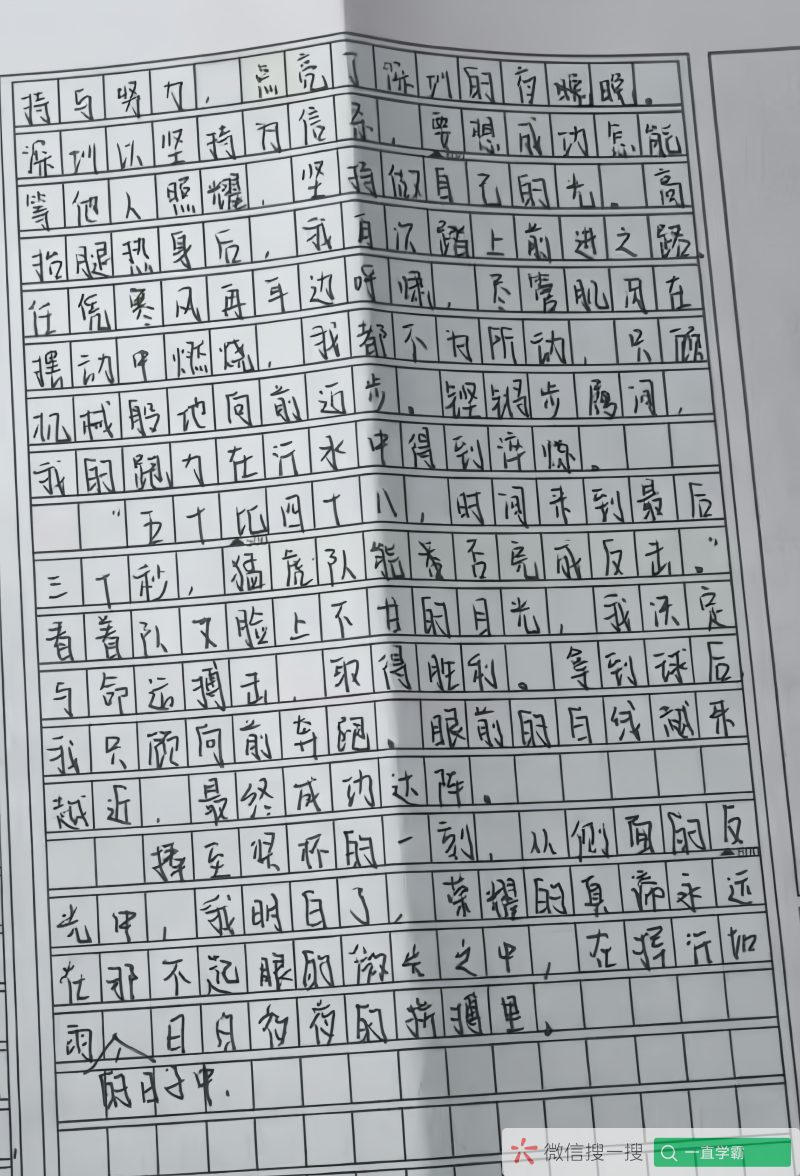 持与努力，点亮了深圳的夜晚。
深圳以坚持为信条，要想成功怎能
等他人照耀，坚持做自己的光。高
抬腿热身后，我再次踏上前进之路。
任凭寒风再耳边呼啸，尽管肌肉在
摆动中燃烧，我都不为所动，只顾
机械般地向前迈步。铿锵步履间，
我的跑力在汗水中得到淬炼。
“五十比四十八，时间来到最后
三十秒，猛虎队能否完成反击。”
看着队友脸上不甘的目光，我决定
与命运搏击，取得胜利。拿到球后，
我只顾向前奔跑。眼前的白线越来
越近，最终成功达阵。
捧至奖杯的一刻，从侧面的反
光中，我明白了，荣耀的真谛永远
在那不起眼的微光之中，在挥汗如
雨 日日夜夜的拼搏里。
的日子中.
500
600
微信搜一搜 一直学霸